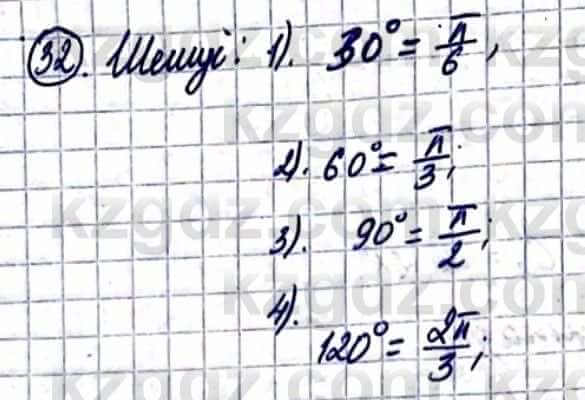 32. Шешуі: 1). 30° = π/6,
2). 60° = π/3;
3). 90° = π/2;
4). 120° = 2π/3;
kzgdz.com